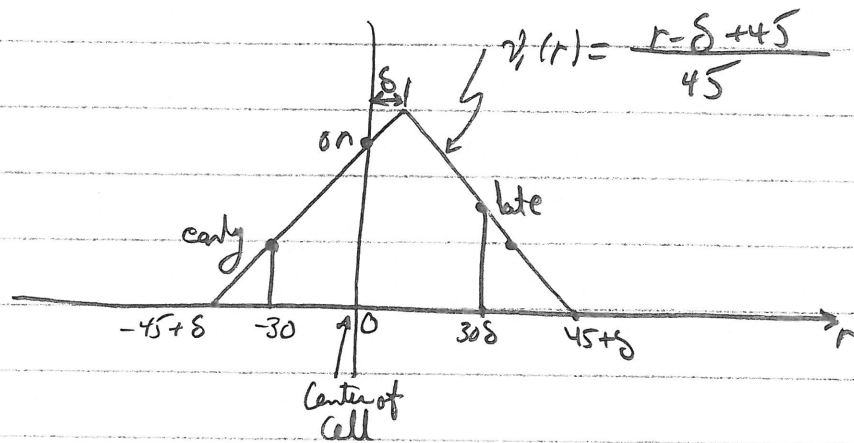 v₁(r) = (r-δ+45)/45
δ
on
late
early
-45+δ -30 0 30δ 45+δ r
Center of
Cell